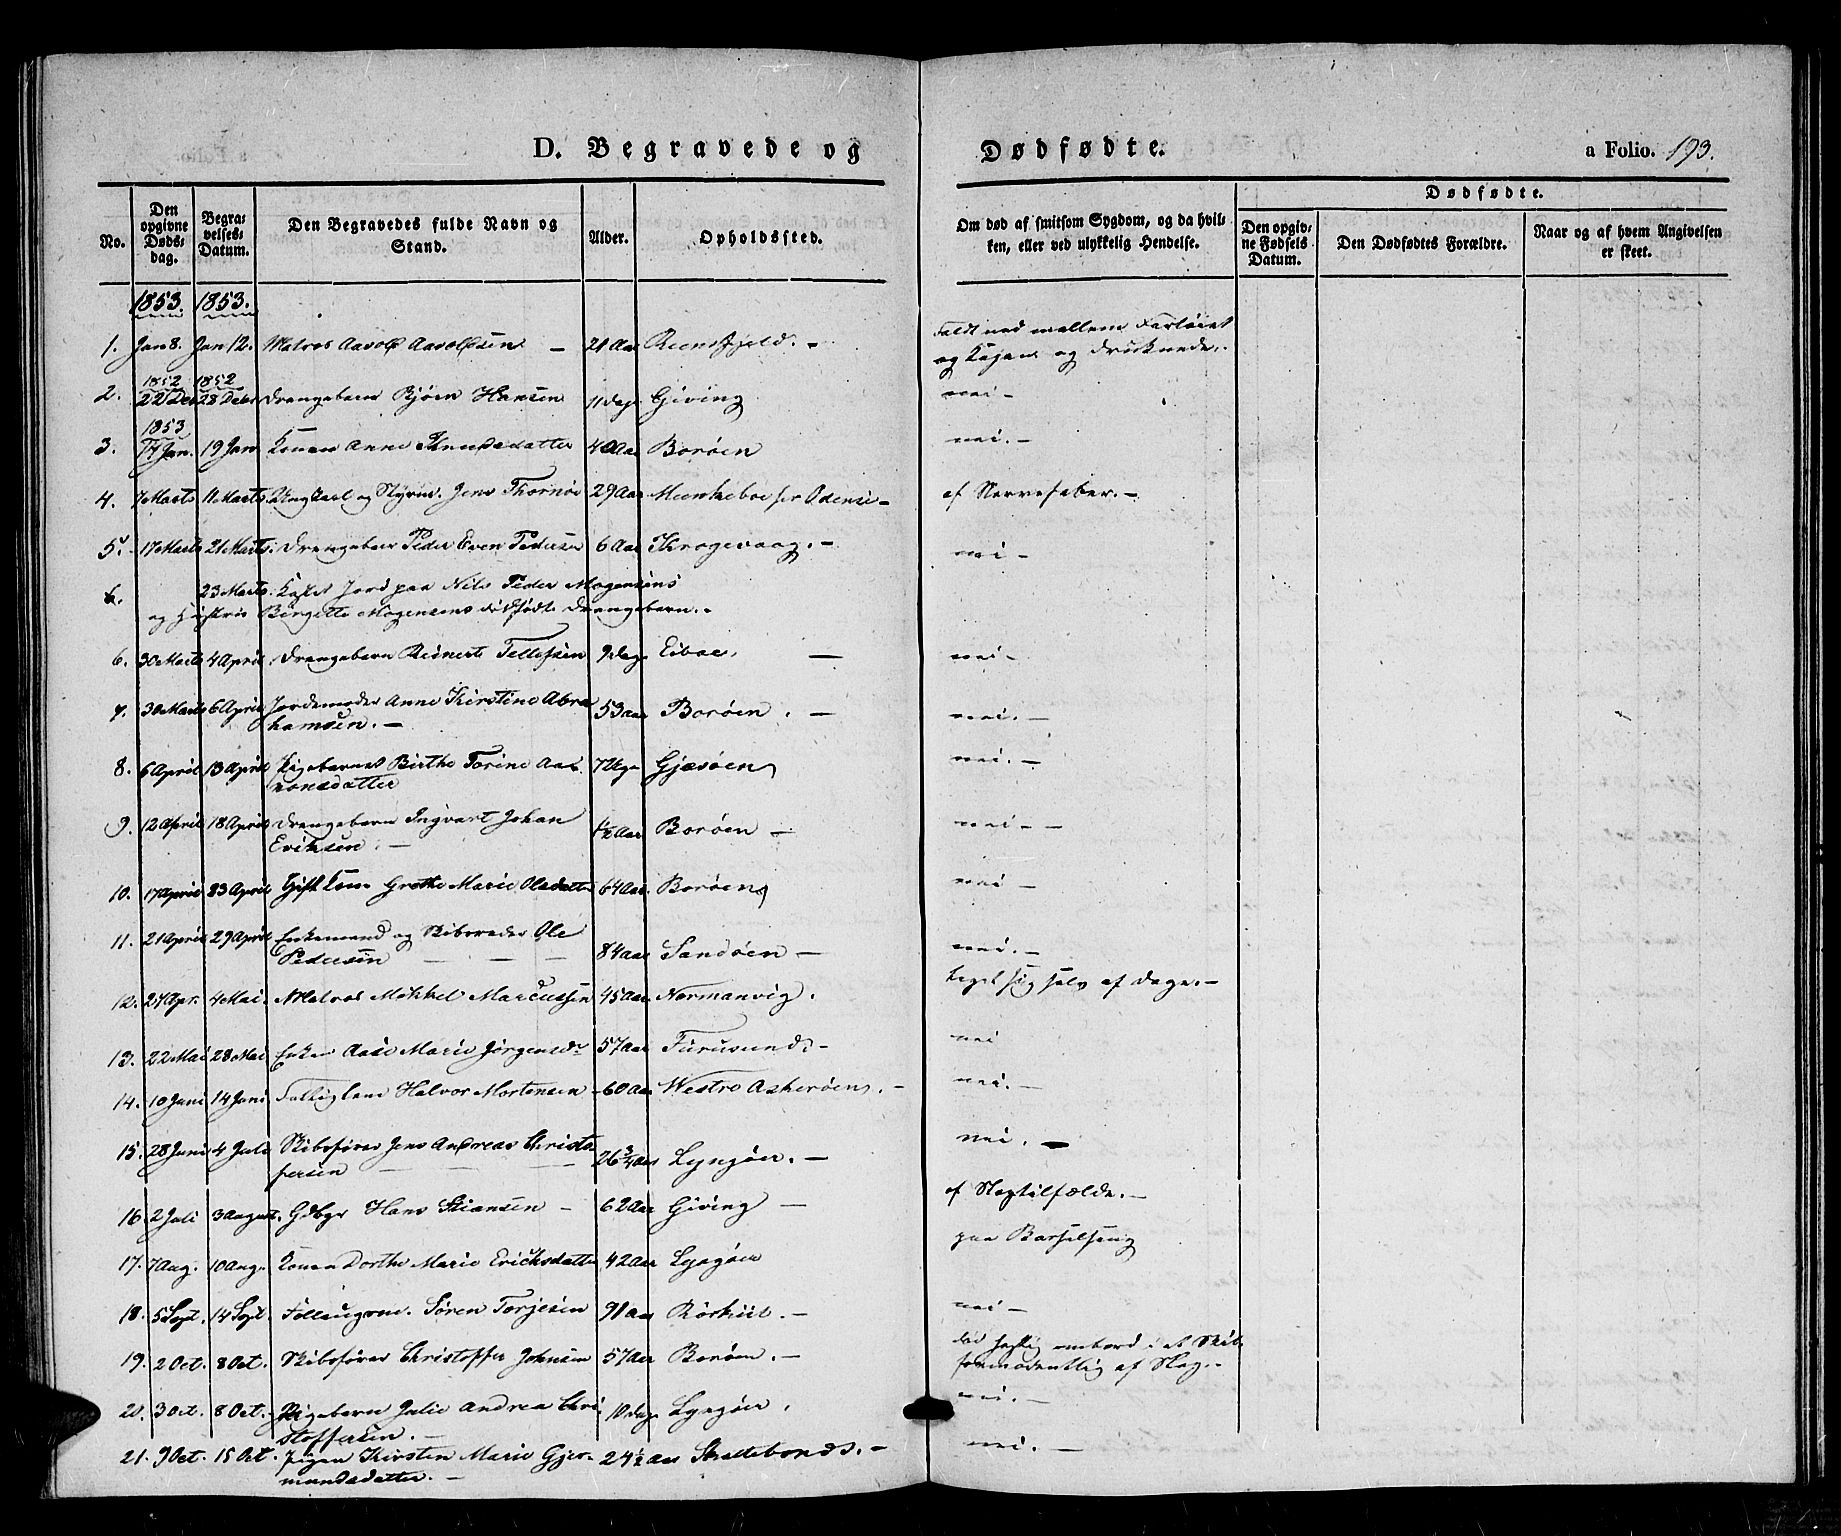 D. Begravede og Dødfødte.
a Folio. 193.
No.
Den opgivne Døds-dag.
Begra-velses-Datum.
Den Begravedes fulde Navn og Stand.
Alder.
Opholdssted.
Om død af smitsom Sygdom, og da hvil-ken, eller ved ulykkelig Hendelse.
Dødfødte.
Den opgiv-ne Fødsels Datum.
Den Dødfødtes Forældre.
Naar og af hvem Angivelsen er skeet.
1853. 1853.
1. Jan 8. Jan 12. Matros Aavold Aavoldsen – 21 Aar – Faldt ned mellem Fartøiet
og Kajen og druknede.
1852 1852
2. 22 Dec 28 Decbr Drengebarn Bjørn Hansen 11 dage Giving nei –
1853
3. 14 Jan. 19 Jan Konen Anne Knudsdatter 40 Aar Borøen nei. –
4. 7 Marts 11 Marts. Ungkarl og Styrm. Jens Thornøe 29 Aar Munkeboe for Odense – af Nervefeber. –
5. 17 Marts 21 Marts. Drengebarn Peder Even Pedersen 6 Aar Krogevaag. – nei –
6. 23 Marts. Kastet Jord paa Nils Peder Mogensens
og Hustrue Birgitte Mogensens dødfødte Drengebarn. –
6. 30 Marts 4 April Drengebarn Reinert Tellefsen 9 dage Eiboe. – nei –
7. 30 Marts 6 April Jordemoder Anne Kirstine Abra
hamsen. – 53 Aar Borøen. – nei. –
8. 6 April 13 April Pigebarnet Birthe Torine Aa
ronsdatter 7 Uger Gjesøen nei. –
9. 12 April 18 April Drengebarn Ingvart Johan
Eriksen. – ½ Aar Borøen – nei – –
10. 17 April 23 April Gift Kone Grethe Marie Olsdatter 64 Aar. Borøen nei –
11. 21 April 29 April Enkemand og Skibsreder Ole
Pedersen – – – 84 Aar Sandøen – nei. –
12. 27 Apr. 4 Mai. Matros Mikkel Marcussen 45 Aar Normanvig. taget sig selv af Dage. –
13. 22 Mai 28 Mai Enken Aase Marie Jørgensdr 57 Aar Furusund. – nei
14. 10 Juni 14 Juni Fattiglem Halvor Mortensen – 60 Aar Westre Askerøen. – nei. –
15. 28 Juni 4 Juli Skibsfører Jens Andreas Christo
fersen – – – 26 ¾ Aar Lyngøer. – nei. –
16. 2 Juli 3 August. Gdbgr Hans Stiansen – 62 Aar Giving – af Slagtilfælde. –
17. 7 Aug. 10 Aug. Konen Dorthe Marie Erichsdatter 42 Aar Lyngøer paa Barselseng
18. 5 Sept. 14 Sept. Søren Terjesen 91 Aar Rørkiil. – nei –
19. 2 Oct. 8 Oct. Skibsfører Christoffer Johnsen 57 Aar Borøen. – død ombord i et Skib,
formodentlig af Slag. –
20. 3 Oct. 8 Oct. Pigebarn Julie Andrea Chri
stoffersen. – 10 dage Lyngøer. nei. –
21. 9 Oct. 15 Oct. Pigen Kirsten Marie Gjer-
mundsdatter. – 24 ½ Aar – nei. –